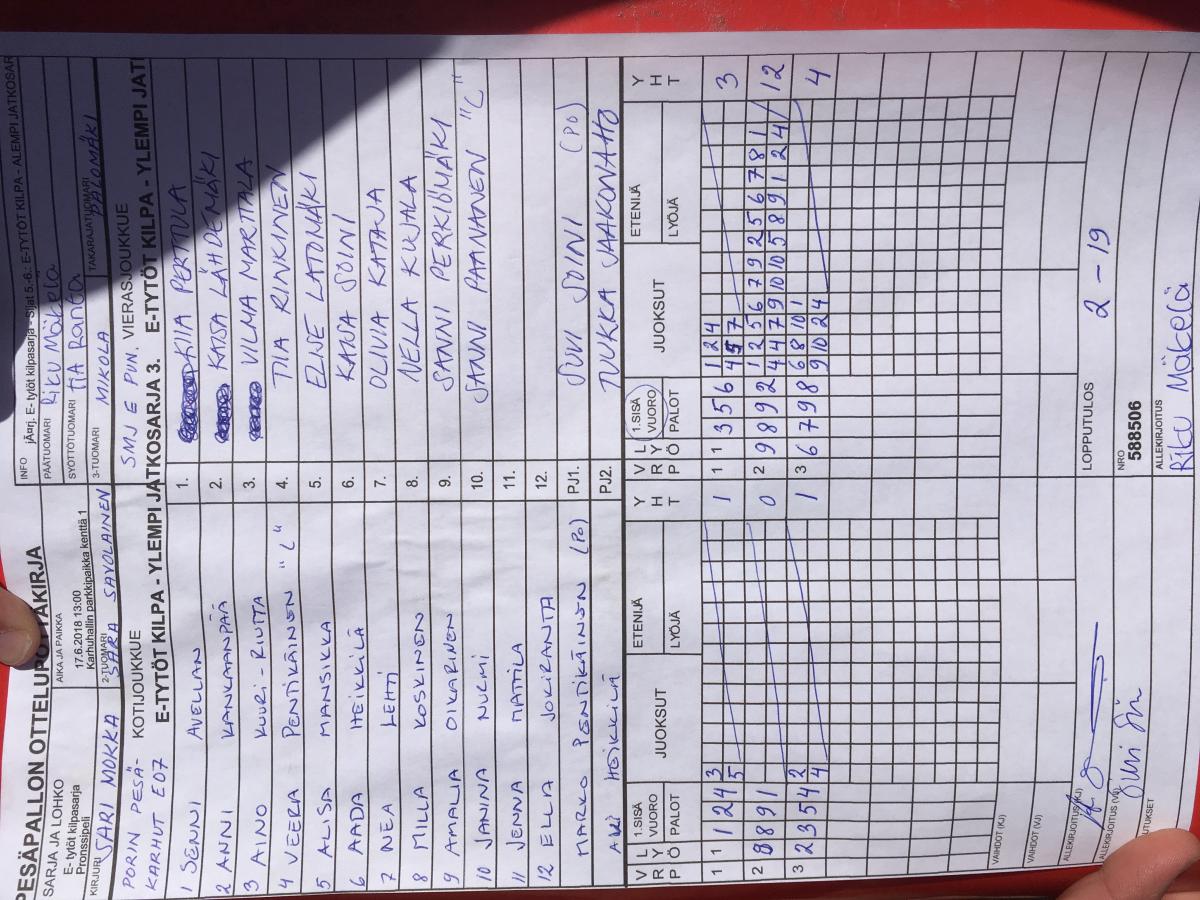 PESÄPALLON OTTELUPÖYTÄKIRJA
SARJA JA LOHKO
E- tytöt kilpasarja
Pronssipeli
AIKA JA PAIKKA
17.6.2018 13:00
Karhuhallin parkkipaikka kenttä 1
INFO
E- tytöt kilpasarja - Sijat 5.-6.: E-TYTÖT KILPA - ALEMPI JATKOSAR
PÄÄTUOMARI Riku Mäkelä
SYÖTTÖTUOMARI Ranta
KIRJURI SARI MOKKA
2-TUOMARI SARA SAVOLAINEN
3-TUOMARI MIKOLA
TAKARAJATUOMARI PALOMÄKI
PORIN PESÄ- KOTIJOUKKUE
KARHUT E07
SMJ E PUN. VIERASJOUKKUE
E-TYTÖT KILPA - YLEMPI JATKOSARJA 3. E-TYTÖT KILPA - YLEMPI JAT
1 SENNI AVELLAN
2 ANNI KANKAANPÄÄ
3 AINO KUURI-RIUTTA
4 VEERA PENTIKÄINEN "L"
5 ALISA MANSIKKA
6 AADA HEIKKILÄ
7 NEA LEHTI
8 MILLA KOSKINEN
9 AMALIA OIKARINEN
10 JANINA NURMI
11 JENNA MATTILA
12 ELLA JOKIRANTA
MARKO PENTIKÄINEN (PO)
AKI HEIKKILÄ
1. KIA PERTTULA
2. KATSA LÄHDEMÄKI
3. VILMA MARTTALA
4. TIIA RINKINEN
5. ELNE LATOMÄKI
6. KATJA SOINI
7. OLIVIA KATAJA
8. NELLA KUJALA
9. SANNI PERKIÖMÄKI
10. SANNI PAANANEN "L"
11.
12.
PJ1. SUVI SOINI (PO)
PJ2. JUKKA JAAKONAHO
VRP LYÖ 1.SISÄ VUORO PALOT JUOKSUT ETENIJÄ LYÖJÄ YHT
1 1 124 3 1
5
2 8891 0
3 2354 2 1
4
VRP LYÖ 1.SISÄ VUORO PALOT JUOKSUT ETENIJÄ LYÖJÄ YHT
1 1 356 124 3
2 9892 125679256781 12
447910589124
3 6798 68101 4
91024
VAIHDOT (KJ)
VAIHDOT (VJ)
ALLEKIRJOITUS (KJ)
ALLEKIRJOITUS (VJ)
UTUKSET
LOPPUTULOS 2-19
NRO
588506
ALLEKIRJOITUS
Riku Mäkelä